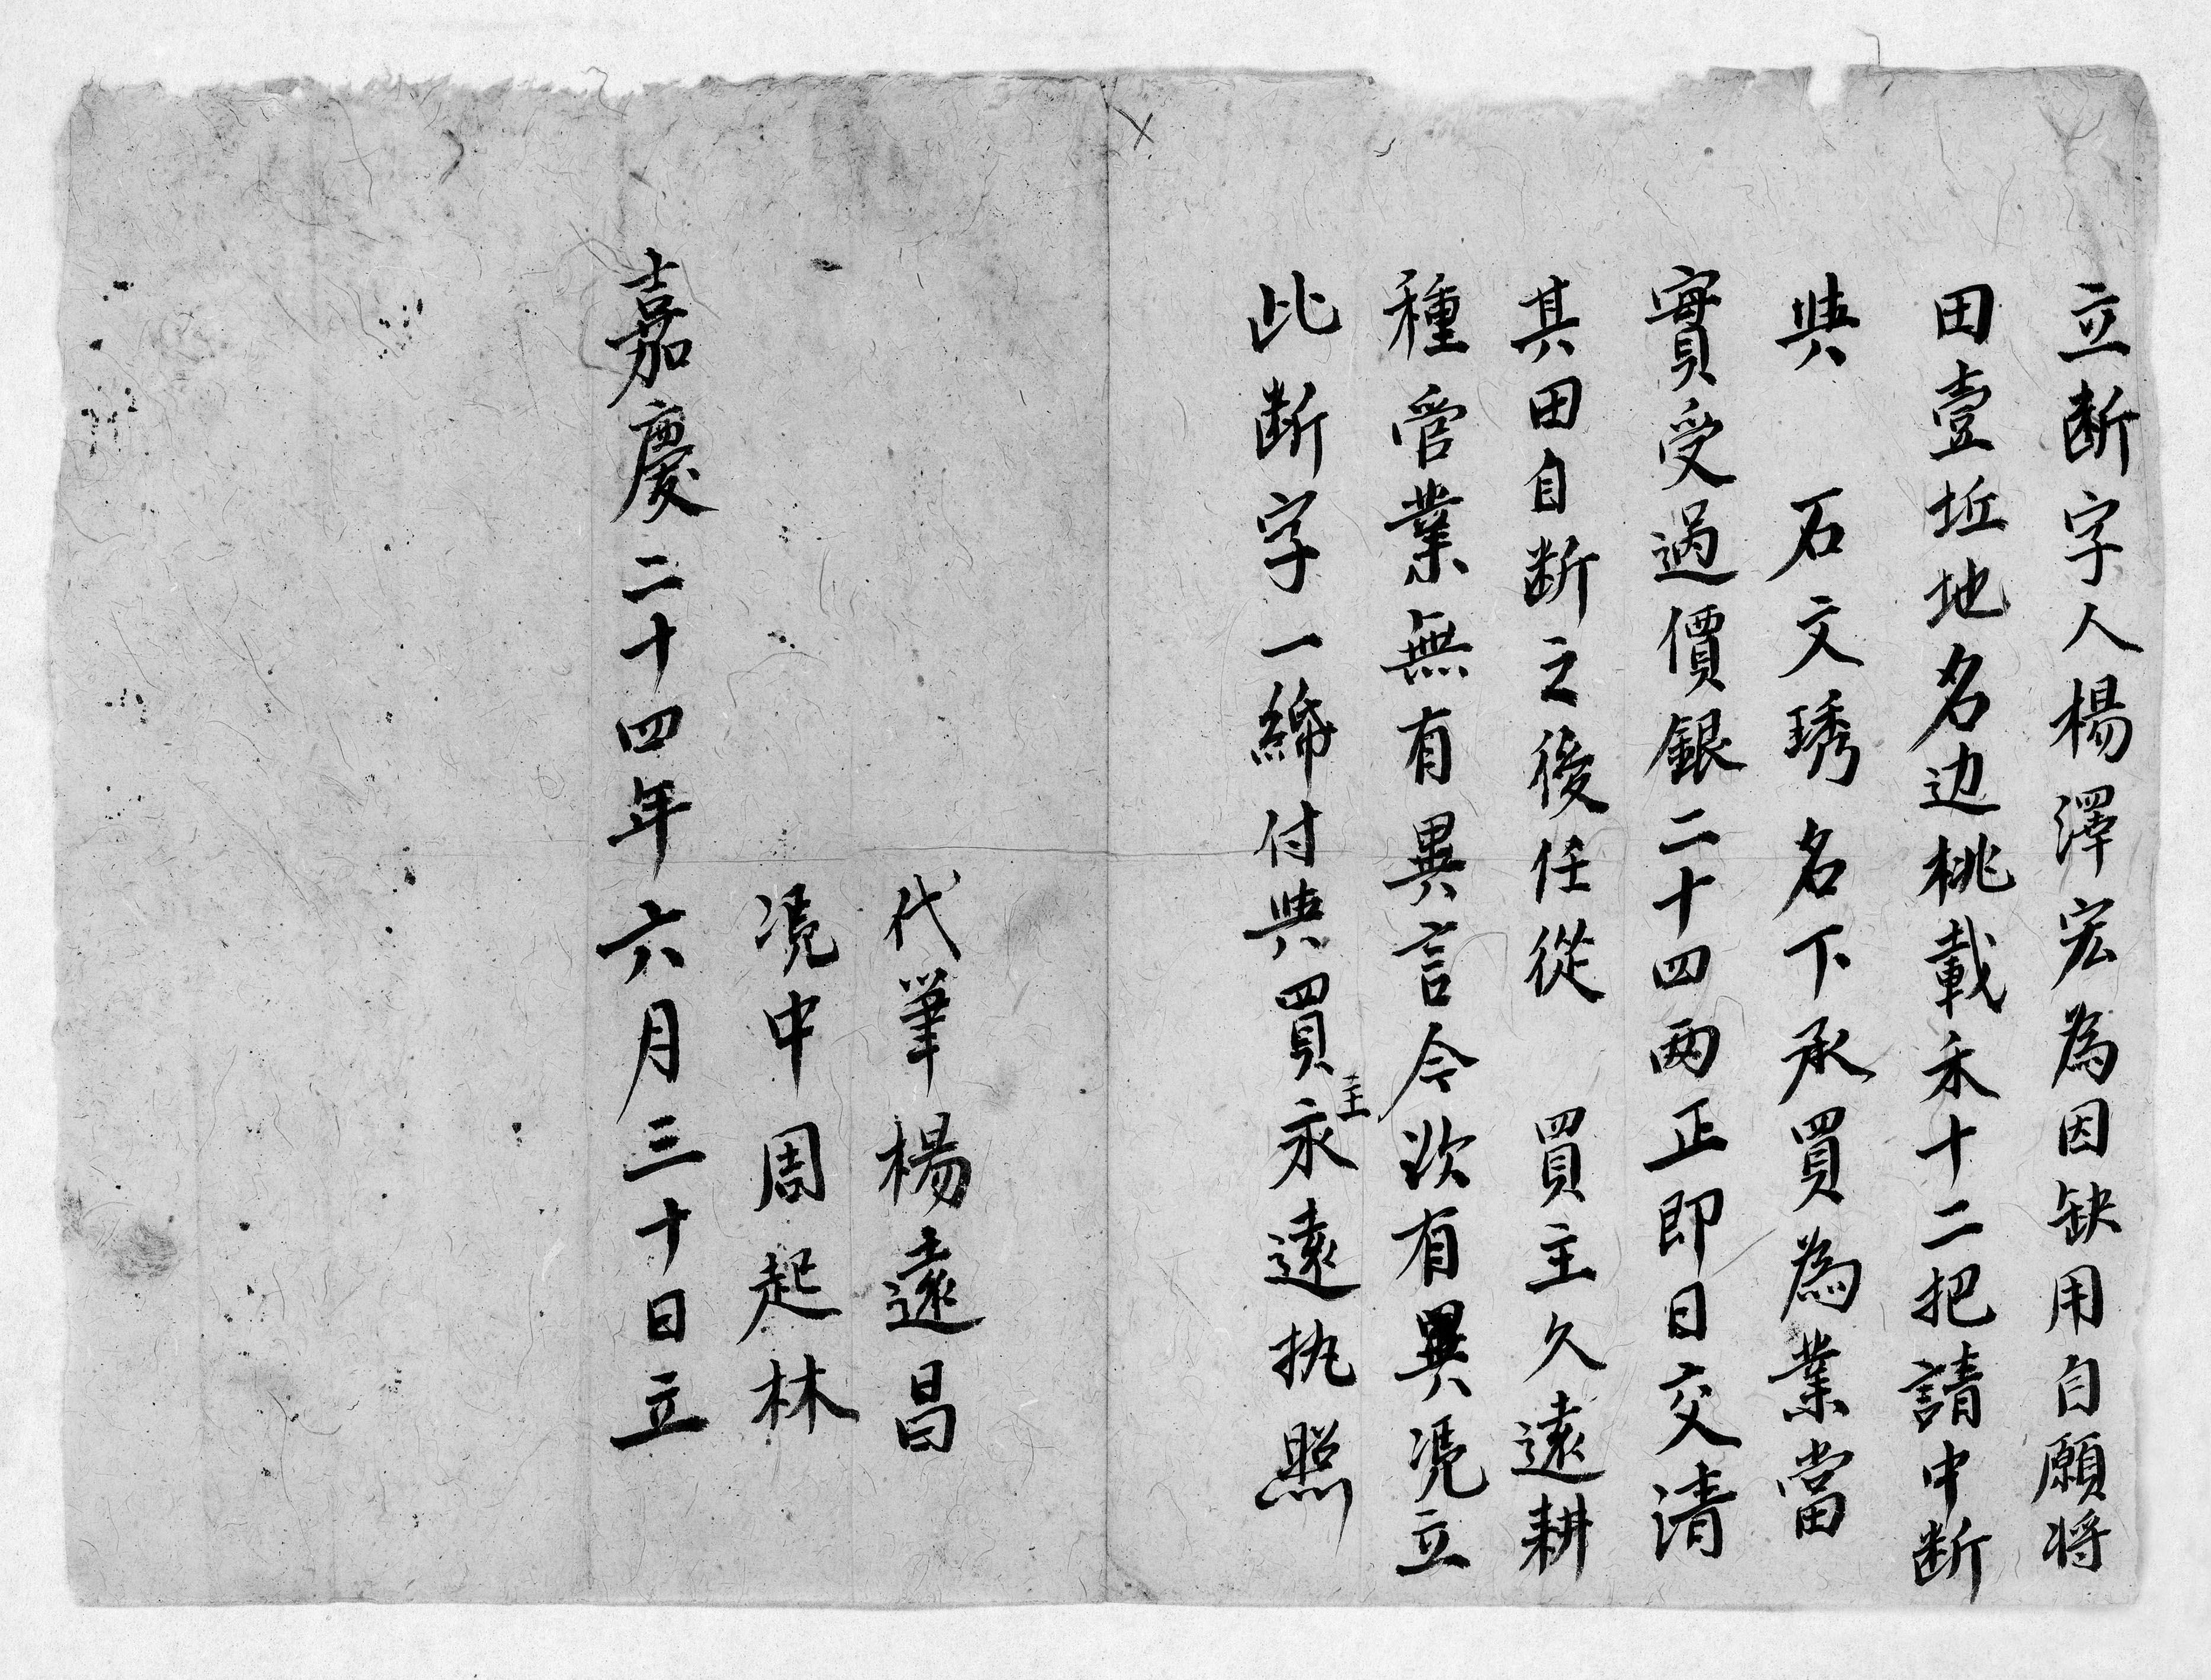 立断字人楊澤宏為因缺用自願将
田壹坵地名边桃載禾十二把請中断
典　石文琇名下承買為業當
實受過價銀二十四两正即日交清
其田自断之後任從　買主久遠耕
種管業無有異言今欲有異凴立
此断字一綿付典買主永遠执照
代筆楊遠昌
凴中周起林
嘉慶二十四年六月三十日立